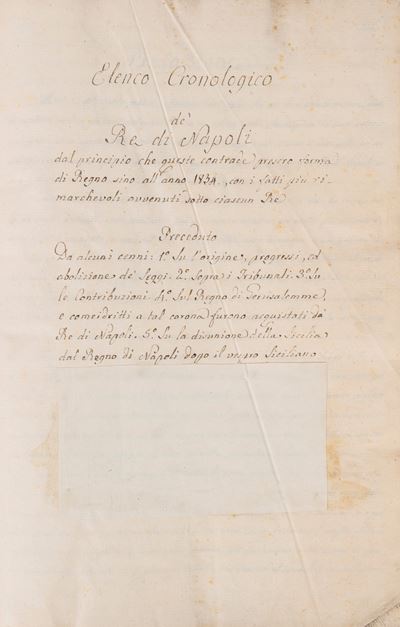 Elenco Cronologico
de'
Re di Napoli
dal principio che queste contrade presero forma
di Regno sino all'anno 1834, con i fatti più ri-
marchevoli avvenuti sotto ciascun Re
Preceduto
Da alcuni cenni: 1º Su l'origine, progressi, ed
abolizione de' Seggi. 2º Sopra i Tribunali. 3º Su
le Contribuzioni. 4º Sul Regno di Gerusalemme,
e come i dritti a tal corona furono acquistati da'
Re di Napoli. 5º Su la disunione della Sicilia
dal Regno di Napoli dopo il vespro Siciliano